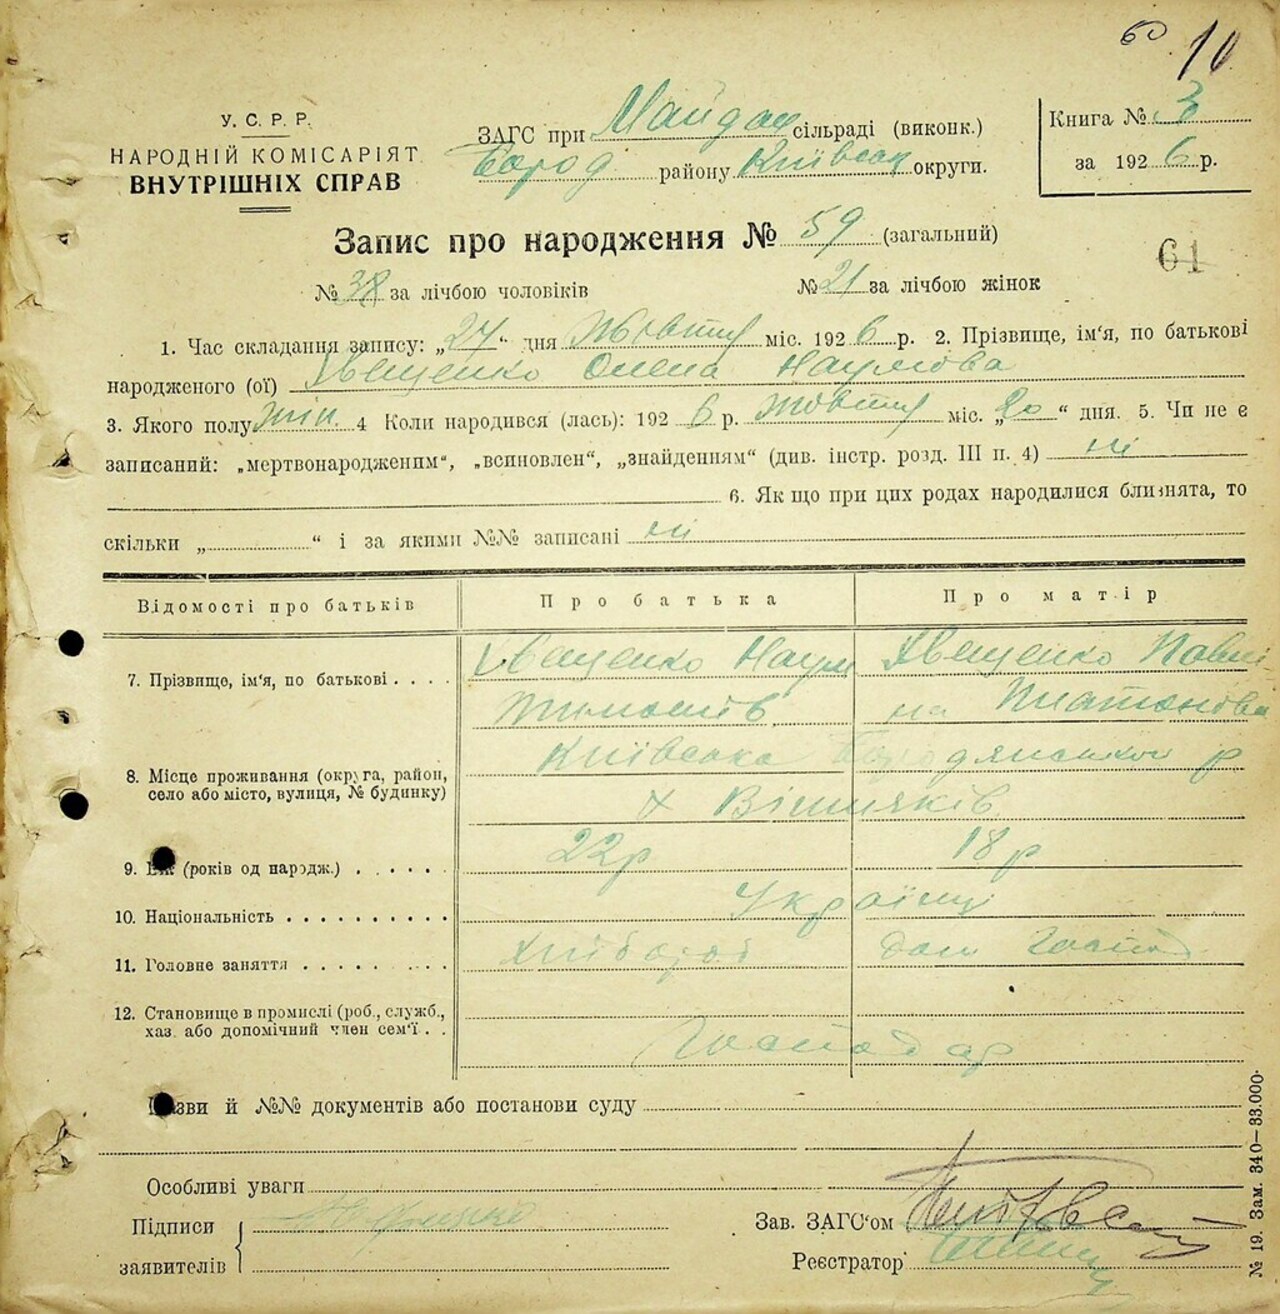 10
У. С. Р. Р.
НАРОДНІЙ КОМІСАРІЯТ
ВНУТРІШНІХ СПРАВ
ЗАГС при Майдан сільраді (виконк.)
Бород району Київськ округи.
Книга № 3
за 1926 р.
Запис про народження № 59 (загальний)
61
№ 38 за лічбою чоловіків № 21 за лічбою жінок
1. Час складання запису: „27“ дня Жовтня міс. 1926 р. 2. Прізвище, ім'я, по батькові
народженого (ої) Іващенко Олена Наумова
3. Якого полу жін. 4 Коли народився (лась): 1926 р. Жовтня міс. „20“ дня. 5. Чи не є
записаний: „мертвонародженим“, „всиновлен“, „знайденням“ (див. інстр. розд. III п. 4) ні
6. Як що при цих родах народилися близнята, то
скільки „ “ і за якими №№ записані ні
Відомості про батьків Про батька Про матір
7. Прізвище, ім'я, по батькові . . . . Іващенко Наум Іващенко Павлі-
Тимошів на Платонова
8. Місце проживання (округа, район, село або місто, вулиця, № будинку) Київська Бородянського р
х Вішняків
9. Вік (років од народж.) . . . . . . 22р 18р
10. Національність . . . . . . . . . . Українці
11. Головне заняття . . . . . . . . . Хлібороб дом Госпód
12. Становище в промислі (роб., служб., хаз. або допомічний член сем'ї . . Господар
Назви й №№ документів або постанови суду
Особливі уваги
Підписи
заявителів
Зав. ЗАГС'ом
Реєстратор
№ 19. Зам. 340—33.000.